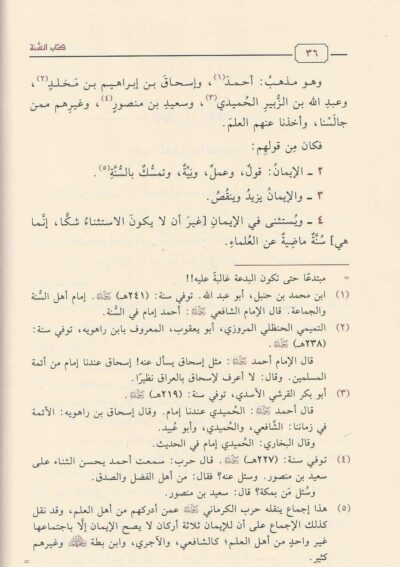 ٣٦
كتاب السُّنة
وهو مذهبُ: أحمدَ(١)، وإسحاقَ بن إبراهيم بن مَخلدٍ(٢)،
وعبدِ الله بن الزُّبيرِ الحُميدي(٣)، وسعيدِ بن منصورٍ(٤)، وغيرِهم ممن
جالَسْنا، وأخذنا عنهم العلمَ.
فكان مِن قولهم:
٢ ـ الإيمانُ: قولٌ، وعملٌ، ونيَّةٌ، وتمسُّكٌ بالسُّنَّةِ(٥).
٣ ـ والإيمانُ يزيدُ وينقُصُ.
٤ ـ ويُستثنى في الإيمانِ [غيرَ أن لا يكونَ الاستثناءُ شكًّا، إنَّما
هي] سُنَّةٌ ماضِيةٌ عن العُلماءِ.
= مبتدعًا حتى تكون البدعة غالبةً عليه!!
(١) ابن محمد بن حنبل، أبو عبد الله. توفي سنة: (٢٤١هـ) ﷺ. إمام أهل السُّنة
والجماعة. قال الإمام الشافعي ﷺ: أحمد إمام في السُّنة.
(٢) التميمي الحنظلي المروزي، أبو يعقوب، المعروف بابن راهويه، توفي سنة:
(٢٣٨هـ) ﷺ.
قال الإمام أحمد ﷺ: مثل إسحاق يسأل عنه! إسحاق عندنا إمام من أئمة
المسلمين. وقال: لا أعرف لإسحاق بالعراق نظيرًا.
(٣) أبو بكر القرشي الأسدي، توفي سنة: (٢١٩هـ) ﷺ.
قال أحمد ﷺ: الحُميدي عندنا إمام. وقال إسحاق بن راهويه: الأئمة
في زماننا: الشَّافعي، والحُميدي، وأبو عُبيد.
وقال البخاري: الحُميدي إمام في الحديث.
(٤) توفي سنة: (٢٢٧هـ) ﷺ. قال حرب: سمعت أحمد يحسن الثناء على
سعيد بن منصور. وسئل عنه؟ فقال: من أهل الفضل والصدق.
وسُئل مَن بمكة؟ قال: سعيد بن منصور.
(٥) هذا إجماع ينقله حرب الكرماني ﷺ عمن أدركهم من أهل العلم، وقد نقل
كذلك الإجماع على أن للإيمان ثلاثة أركان لا يصح الإيمان إلَّا باجتماعها
غير واحدٍ من أهل العلم؛ كالشافعي، والآجري، وابن بطة وغيرهم
كثير. =